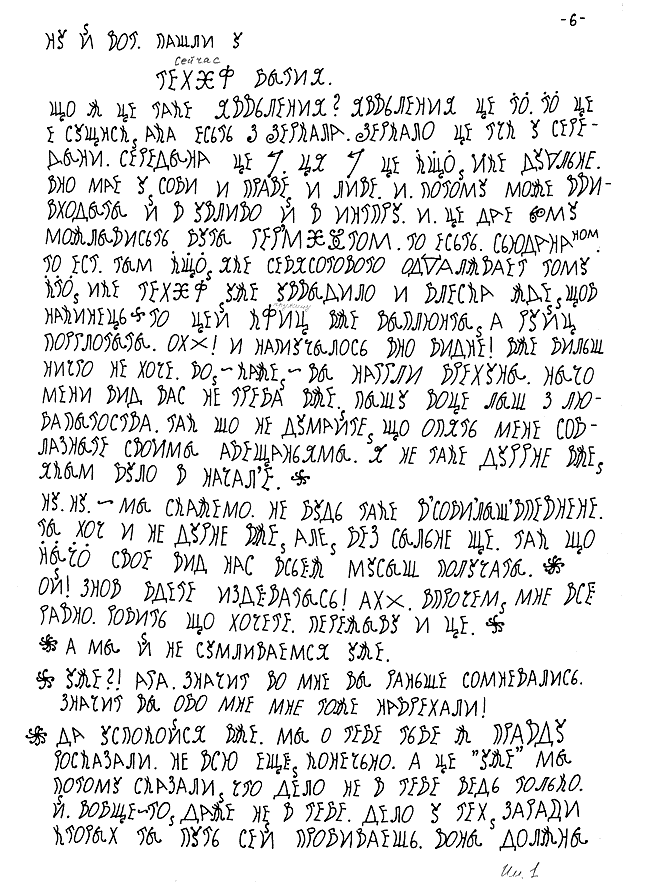 -6-
НУ Й ВОТ. ПАШЛИ У
сейчас
ВЫТИЯ.
ЩО Ж ЦЕ ТАКЕ ЯВВЬЛЕНИЯ? ЯВВЬЛЕНИЯ ЦЕ ТО. ТО ЦЕ
Е СУЩИСК, АКА ЕСЬТЬ З ЗЕРКАЛА. ЗЕРКАЛО ЦЕ ТЧК У СЕРЕ-
ДЫНИ. СЕРЕДЫНА ЦЕ 7. ЦЯ 7 ЦЕ КЩО, ИКЕ ДУАЛЬНЕ.
ВНО МАЕ У СОВИ И ПРАВЕ, И ЛИВЕ. И. ПОТОМУ МОЖЕ ВВИ-
ВХОДЫТЫ Й В УВЛИВО Й В ИНТПРУ. И. ЦЕ ДАЕ
МОЖЛЫВИСЬТЬ БУТЫ ТО ЕСТЬ. СЬЮДРАНАНОМ.
ТО ЕСТ. ТЫМ КЩО, ЯКЕ СЕБЯСОТОВОТО ОДДАЛЖВАЕТ ТОМУ
КТО, ИКЕ УЖЕ УВВЫДИЛО И ВЛЕСКА ЖДЕ, ЩОБ
НАКИНЕЦЬ ТО ЦЕЙ ВЖЕ ВЫПЛЮНТЫ, А
ПОГГЛОТЫТЫ. ОХ×! И НАПУЧАЛОСЬ ВНО ВИДНЕ! ВЖЕ БИЛЬШ
НИЧТО НЕ ХОЧЕ. ВО, ~КАЖЕ, ~ВЫ НАГГЛИ БРЕХУНЫ. НАЧО
МЕНИ ВИД ВАС НЕ ТРЕБА ВЖЕ. ПАШУ ВОЦЕ ЛЫШ З ЛЮ-
БАПЫТОСТВА. ТАК ШО НЕ ДУМАЙТЕ, ЩО ОПЯТЬ МЕНЕ СОВ-
ЛАЗНЫТЕ СВОИМЫ АБЕЩАНЬЯМЫ. Я НЕ ТАКЕ ДУГГНЕ ВЖЕ,
ЯКЫМ БУЛО В НАЧАЛ'Е.
НУ. НУ. ~МЫ СКАЖЕМО. НЕ БУДЬ ТАКЕ В'СОВИ'ЛЫШ'ВПЕВНЕНЕ.
ТЫ ХОЧ И НЕ ДУРНЕ ВЖЕ, АЛЕ, БЕЗ СЫЛЬНЕ ЩЕ. ТАК ЩО
НАЧО СВОЕ ВИД НАС ВСЬЕЖ МУСЫШ ПОЛУЧАТЫ.
ОЙ! ЗНОВ БДЕТЕ ИЗДЕВАТЫСЬ! АХ×. ВПРОЧЕМ, МНЕ ВСЕ
РАВНО. РОБИТЬ ЩО ХОЧЕТЕ. ПЕРЕЖЫВУ И ЦЕ.
А МЫ Й НЕ СУМЛИВАЕМСЯ УЖЕ.
УЖЕ?! АГА. ЗНАЧИТ ВО МНЕ ВЫ РАНЬШЕ СОМНЕВАЛИСЬ.
ЗНАЧИТ ВЫ ОБО МНЕ МНЕ ТОЖЕ НАБРЕХАЛИ!
ДА УСПОКОЙСЯ ВЖЕ. МЫ О ТЕБЕ ТЬБЕ Ж ПРАВДУ
РОСКАЗАЛИ. НЕ ВСЮ ЕЩЕ, КОНЕЧЬНО. А ЦЕ "УЖЕ" МЫ
ПОТОМУ СКАЗАЛИ, ЧТО ДЕЛО НЕ В ТЕБЕ ВЕДЬ ТОЛЬКО.
Й. ВОБЩЕ-ТО, ДАЖЕ НЕ В ТЕБЕ. ДЕЛО У ТЕХ, ЗАРАДИ
КТОРЫХ ТЫ ПУТЬ СЕЙ ПРОБИВАЕШЬ. ВОНЫ ДОЛЖНЫ